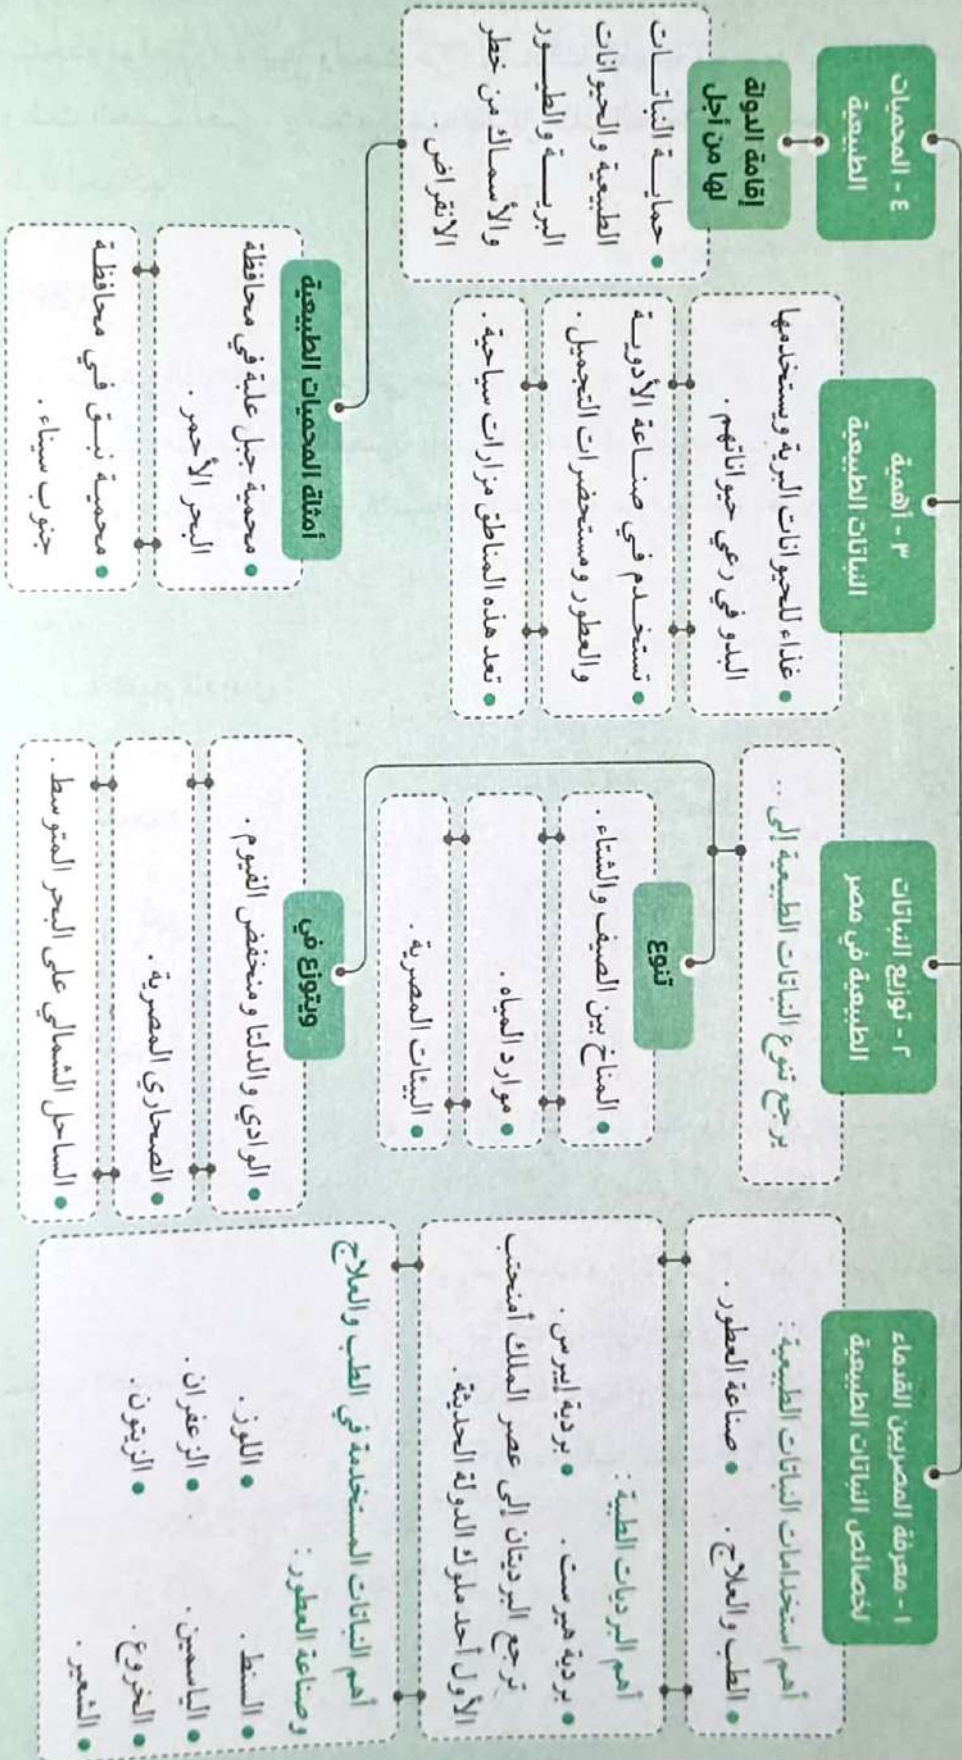 ١ - معرفة المصريين القدماء
لخصائص النباتات الطبيعية
أهم استخدامات النباتات الطبيعية :
• الطب والعلاج . • صناعة العطور .
أهم البرديات الطبية :
• بردية هيرست . • بردية إيبرس .
ترجع البرديتان إلى عصر الملك أمنحتب
الأول أحد ملوك الدولة الحديثة .
أهم النباتات المستخدمة في الطب والعلاج
وصناعة العطور :
• السنط . • اللوز .
• الياسمين . • الزعفران .
• الخروع . • الزيتون .
• الشعير .
٢ - توزيع النباتات
الطبيعية في مصر
يرجع تنوع النباتات الطبيعية إلى ..
تنوع
• المناخ بين الصيف والشتاء .
• موارد المياه .
• البيئات المصرية .
ويتوزع في
• الوادي والدلتا ومنخفض الفيوم .
• الصحاري المصرية .
• الساحل الشمالي على البحر المتوسط .
٣ - أهمية
النباتات الطبيعية
• غذاء للحيوانات البرية ويستخدمها
البدو في رعي حيواناتهم .
• تستخدم في صناعة الأدوية
والعطور ومستحضرات التجميل .
• تعد هذه المناطق مزارات سياحية .
٤ - المحميات
الطبيعية
إقامة الدولة
لها من أجل
• حماية النباتات
الطبيعية والحيوانات
البرية والطيور
والأسماك من خطر
الانقراض .
أمثلة المحميات الطبيعية
• محمية جبل علبة في محافظة
البحر الأحمر .
• محمية نبق في محافظة
جنوب سيناء .